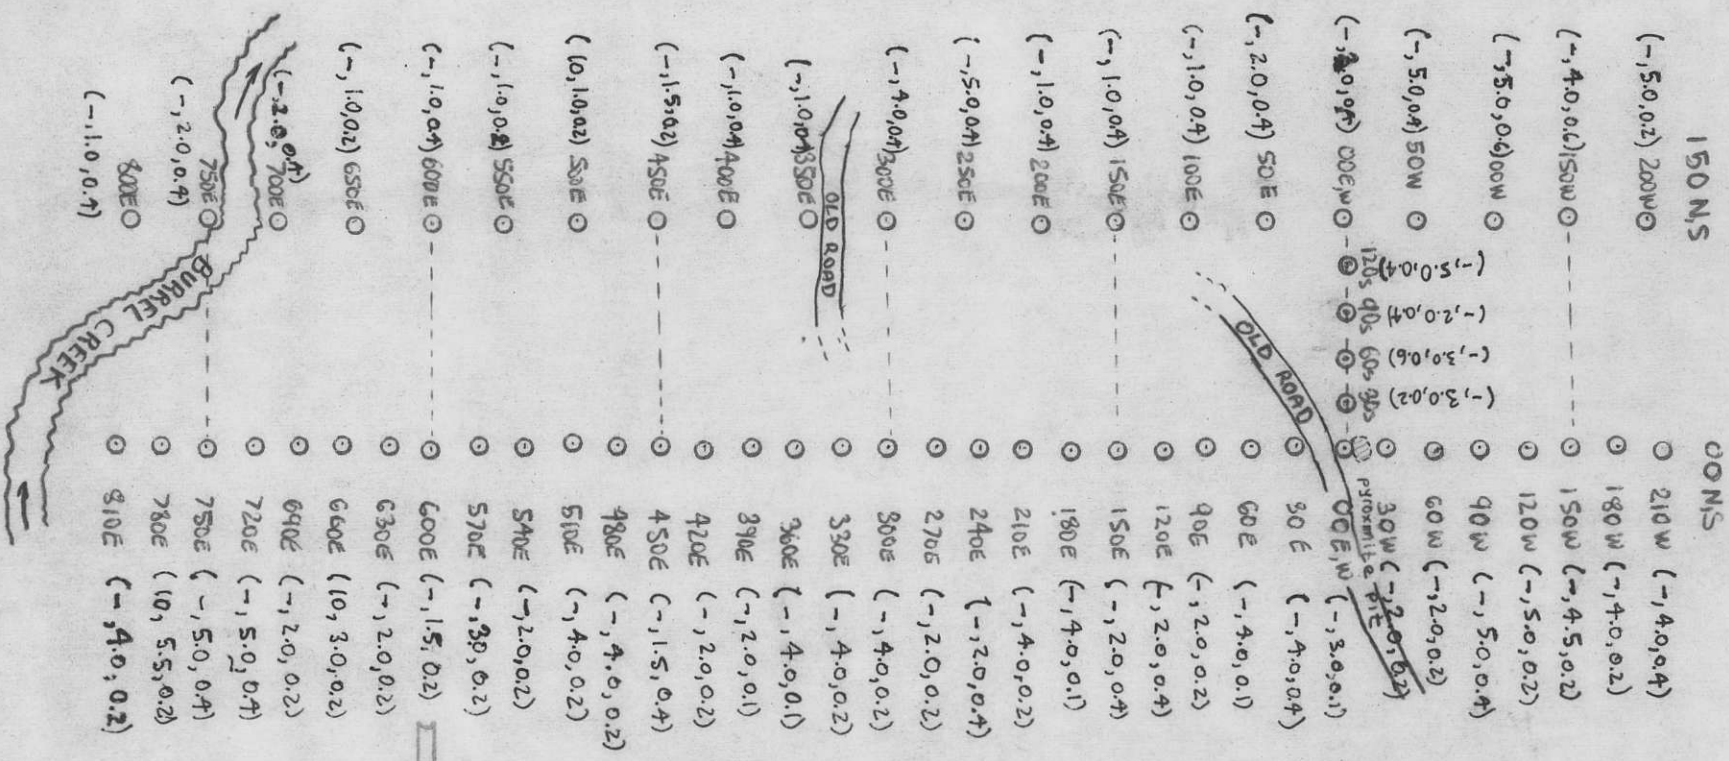 150 N,S
(-, 5.0, 0.2) 200W
(-, 4.0, 0.6) 150W
(-, 5.0, 0.6) 00W
(-, 5.0, 0.4) 50W
00E,W
(-, 2.0, 0.4) 50E
(-, 1.0, 0.4) 100E
(-, 1.0, 0.4) 150E
(-, 1.0, 0.4) 200E
(-, 5.0, 0.4) 250E
(-, 4.0, 0.4) 300E
(-, 1.0, 0.4) 350E
(-, 1.0, 0.4) 400E
(-, 1.5, 0.2) 450E
(10, 1.0, 0.2) 500E
(-, 1.0, 0.2) 550E
(-, 1.0, 0.4) 600E
(-, 1.0, 0.2) 650E
(-, 2.0, 0.4) 700E
(-, 2.0, 0.4) 750E
(-, 1.0, 0.4) 800E
120S (-, 5.0, 0.4)
90S (-, 2.0, 0.4)
60S (-, 3.0, 0.6)
30S (-, 3.0, 0.2)
OLD ROAD
OLD ROAD
BURREL CREEK
00 N,S
210W (-, 4.0, 0.4)
180W (-, 4.0, 0.2)
150W (-, 4.5, 0.2)
120W (-, 5.0, 0.2)
90W (-, 5.0, 0.4)
60W (-, 2.0, 0.2)
30W (-, 2.0, 0.2)
pyroxmite pit
00E,W (-, 3.0, 0.1)
30E (-, 4.0, 0.4)
60E (-, 4.0, 0.1)
90E (-, 2.0, 0.2)
120E (-, 2.0, 0.4)
150E (-, 2.0, 0.4)
180E (-, 4.0, 0.1)
210E (-, 4.0, 0.2)
240E (-, 2.0, 0.4)
270E (-, 2.0, 0.2)
300E (-, 4.0, 0.2)
330E (-, 4.0, 0.2)
360E (-, 4.0, 0.1)
390E (-, 2.0, 0.1)
420E (-, 2.0, 0.2)
450E (-, 1.5, 0.4)
480E (-, 4.0, 0.2)
510E (-, 4.0, 0.2)
540E (-, 2.0, 0.2)
570E (-, 3.0, 0.2)
600E (-, 1.5, 0.2)
630E (-, 2.0, 0.2)
660E (10, 3.0, 0.2)
690E (-, 2.0, 0.2)
720E (-, 5.0, 0.4)
750E (-, 5.0, 0.4)
780E (10, 5.5, 0.2)
810E (-, 4.0, 0.2)